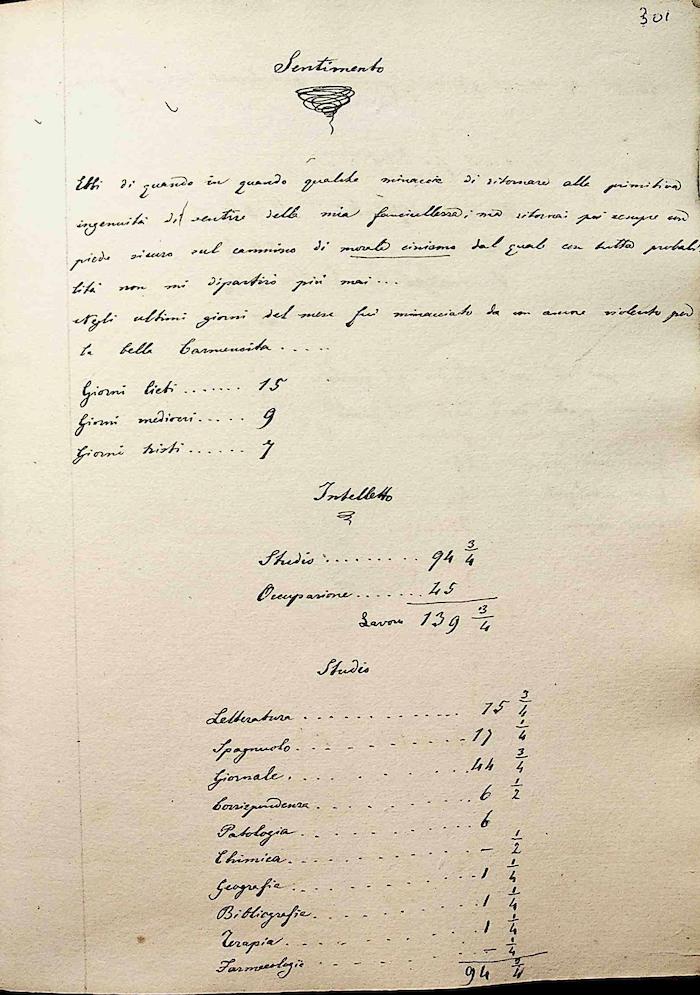 301
Sentimento
Ebbi di quando in quando qualche minaccia di ritornare alla primitiva
ingenuità di sentire della mia fanciullezza; ma ritornai poi sempre con
piede sicuro sul cammino di morale cinismo dal quale con tutta probabi-
lità non mi dipartirò più mai...
Negli ultimi giorni del mese fui minacciato da un amore violento per
la bella Carmencita.....
Giorni lieti....... 15
Giorni mediocri..... 9
Giorni tristi...... 7
Intelletto
Studio......... 94 3/4
Occupazione....... 45
Lavoro 139 3/4
Studio
Letteratura............ 15 3/4
Spagnuolo............ 17 1/4
Giornale............ 44 3/4
Corrispondenza.......... 6 1/2
Patologia............ 6
Chimica............ - 1/2
Geografia............ 1 1/4
Bibliografia............ 1 1/4
Terapia............ 1 1/4
Farmacologia............ - 1/4
94 3/4